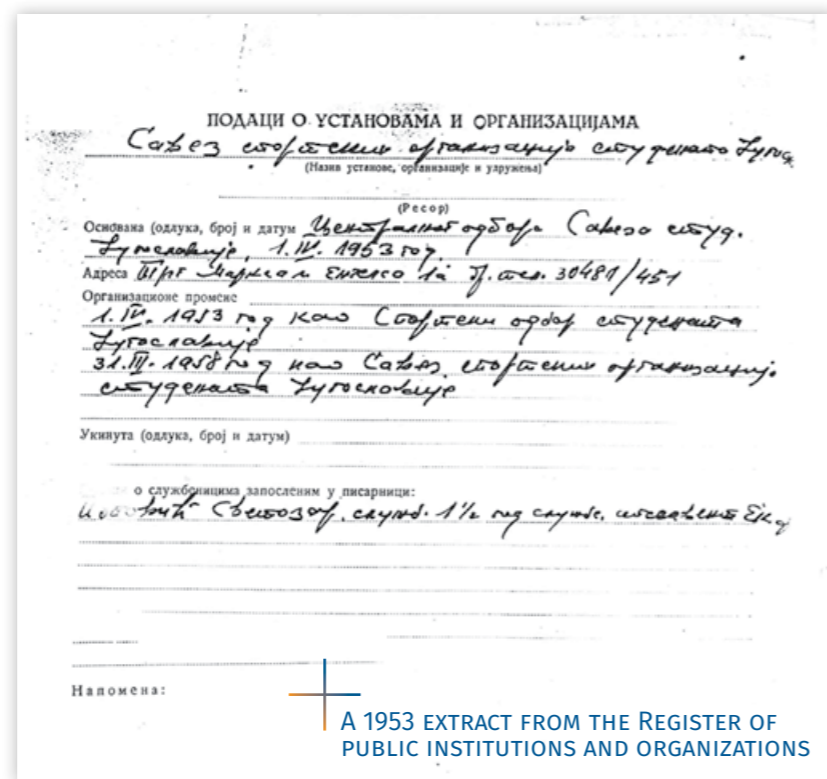 ПОДАЦИ О УСТАНОВАМА И ОРГАНИЗАЦИЈАМА
Савез спортских организација студената Југосл.
(Назив установе, организације и удружења)
(Ресор)
Основана (одлука, број и датум Централног одбора Савеза студ.
Југославије, 1.IV. 1953 год.
Адреса Трг Маркса и Енгелса 1а тел. 30481/451
Организационе промене
1.IV. 1953 год као Спортски одбор студената
Југославије
31.III. 1958 год као Савез спортских организација
студената Југославије
Укинута (одлука, број и датум)
о службеницима запосленим у писарници:
Светозар, служб. 1½ год службе,
Напомена:
A 1953 EXTRACT FROM THE REGISTER OF
PUBLIC INSTITUTIONS AND ORGANIZATIONS